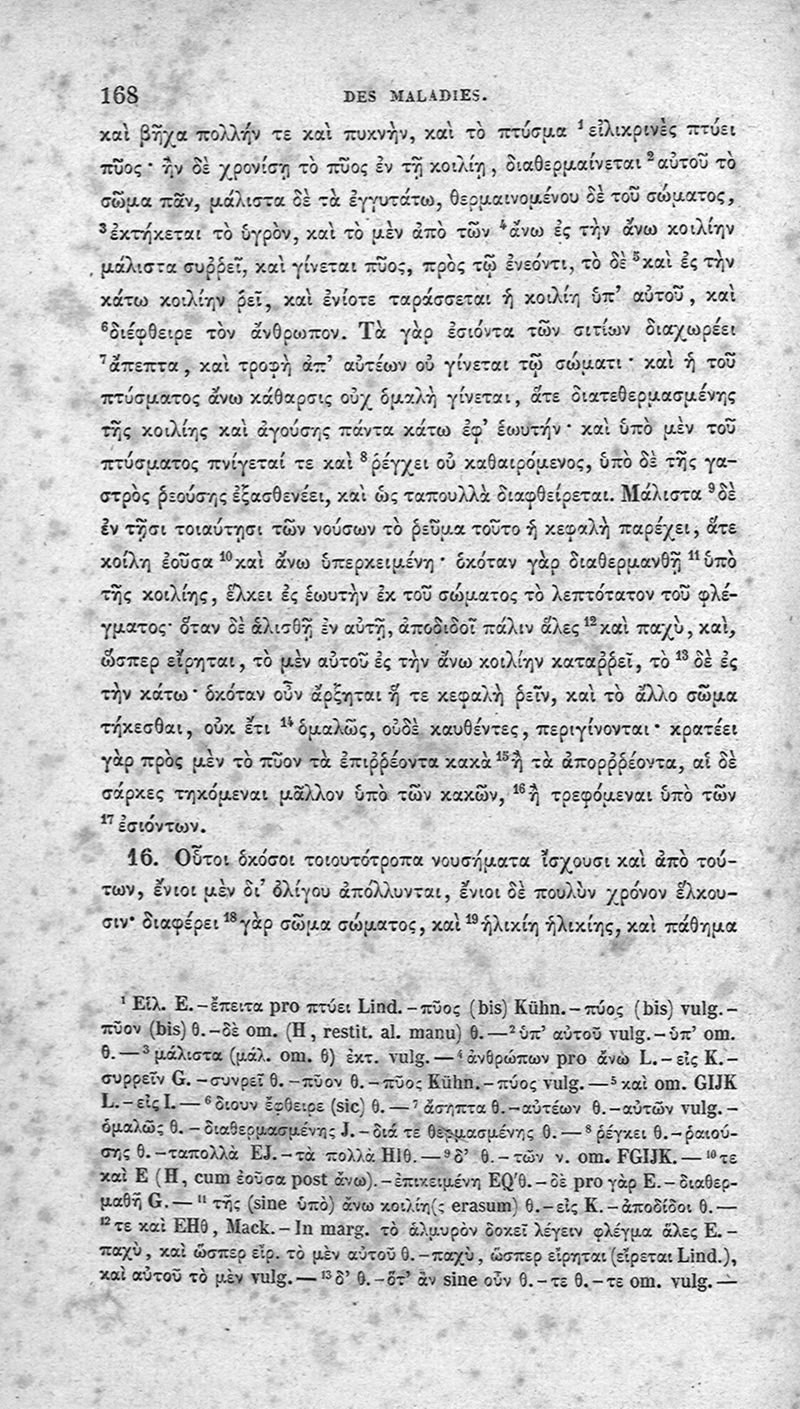 168 DES MALADIES.
καὶ βῆχα πολλήν τε καὶ πυκνὴν, καὶ τὸ πτύσμα ¹εἰλικρινὲς πτύει
πῦος· ἢν δὲ χρονίσῃ τὸ πῦος ἐν τῇ κοιλίῃ, διαθερμαίνεται ²αὐτοῦ τὸ
σῶμα πᾶν, μάλιστα δὲ τὰ ἐγγυτάτω, θερμαινομένου δὲ τοῦ σώματος,
³ἐκτήκεται τὸ ὑγρὸν, καὶ τὸ μὲν ἀπὸ τῶν ⁴ἄνω ἐς τὴν ἄνω κοιλίην
μάλιστα συῤῥεῖ, καὶ γίνεται πῦος, πρὸς τῷ ἐνεόντι, τὸ δὲ ⁵καὶ ἐς τὴν
κάτω κοιλίην ῥεῖ, καὶ ἐνίοτε ταράσσεται ἡ κοιλίη ὑπ’ αὐτοῦ, καὶ
⁶διέφθειρε τὸν ἄνθρωπον. Τὰ γὰρ ἐσιόντα τῶν σιτίων διαχωρέει
⁷ἄπεπτα, καὶ τροφὴ ἀπ’ αὐτέων οὐ γίνεται τῷ σώματι· καὶ ἡ τοῦ
πτύσματος ἄνω κάθαρσις οὐχ ὁμαλὴ γίνεται, ἅτε διατεθερμασμένης
τῆς κοιλίης καὶ ἀγούσης πάντα κάτω ἐφ’ ἑωυτήν· καὶ ὑπὸ μὲν τοῦ
πτύσματος πνίγεταί τε καὶ ⁸ῥέγχει οὐ καθαιρόμενος, ὑπὸ δὲ τῆς γα-
στρὸς ῥεούσης ἐξασθενέει, καὶ ὡς ταπουλλὰ διαφθείρεται. Μάλιστα ⁹δὲ
ἐν τῇσι τοιαύτῃσι τῶν νούσων τὸ ῥεῦμα τοῦτο ἡ κεφαλὴ παρέχει, ἅτε
κοίλη ἐοῦσα ¹⁰καὶ ἄνω ὑπερκειμένη· ὁκόταν γὰρ διαθερμανθῇ ¹¹ὑπὸ
τῆς κοιλίης, ἕλκει ἐς ἑωυτὴν ἐκ τοῦ σώματος τὸ λεπτότατον τοῦ φλέ-
γματος· ὅταν δὲ ἁλισθῇ ἐν αὐτῇ, ἀποδιδοῖ πάλιν ἅλες ¹²καὶ παχὺ, καὶ,
ὥσπερ εἴρηται, τὸ μὲν αὐτοῦ ἐς τὴν ἄνω κοιλίην καταῤῥεῖ, τὸ ¹³δὲ ἐς
τὴν κάτω· ὁκόταν οὖν ἄρξηται ἥ τε κεφαλὴ ῥεῖν, καὶ τὸ ἄλλο σῶμα
τήκεσθαι, οὐκ ἔτι ¹⁴ὁμαλῶς, οὐδὲ καυθέντες, περιγίνονται· κρατέει
γὰρ πρὸς μὲν τὸ πῦον τὰ ἐπιῤῥέοντα κακὰ ¹⁵ἢ τὰ ἀποῤῥέοντα, αἱ δὲ
σάρκες τηκόμεναι μᾶλλον ὑπὸ τῶν κακῶν, ¹⁶ἢ τρεφόμεναι ὑπὸ τῶν
¹⁷ἐσιόντων.
16. Οὗτοι ὁκόσοι τοιουτότροπα νουσήματα ἴσχουσι καὶ ἀπὸ τού-
των, ἔνιοι μὲν δι’ ὀλίγου ἀπόλλυνται, ἔνιοι δὲ πουλὺν χρόνον ἕλκου-
σιν· διαφέρει ¹⁸γὰρ σῶμα σώματος, καὶ ¹⁹ἡλικίη ἡλικίης, καὶ πάθημα
¹ Εἰλ. E.–ἔπειτα pro πτύει Lind.–πῦος (bis) Kühn.–πύος (bis) vulg.–
πῦον (bis) θ.–δὲ om. (H, restit. al. manu) θ.—² ὑπ’ αὐτοῦ vulg.–ὑπ’ om.
θ.—³ μάλιστα (μάλ. om. θ) ἐκτ. vulg.—⁴ ἀνθρώπων pro ἄνω L.–εἰς K.–
συρρεῖν G.–συνρεῖ θ.–πῦον θ.–πῦος Kühn.–πύος vulg.—⁵ καὶ om. GIJK
L.–εἰς I.—⁶ διουν ἔφθειρε (sic) θ.—⁷ ἄσηπτα θ.–αὐτέων θ.–αὐτῶν vulg.–
ὁμαλῶς θ.–διαθερμασμένης J.–διά τε θερμασμένης θ.—⁸ ῥέγκει θ.–ῥαιού-
σης θ.–ταπολλὰ EJ.–τὰ πολλὰ HIθ.—⁹ δ’ θ.–τῶν ν. om. FGIJK.—¹⁰ τε
καὶ E (H, cum ἐοῦσα post ἄνω).–ἐπικειμένη EQ'θ.–δὲ pro γὰρ E.–διαθερ-
μαθῇ G.—¹¹ τῆς (sine ὑπὸ) ἄνω κοιλίη(ς erasum) θ.–εἰς K.–ἀποδίδοι θ.—
¹² τε καὶ EHθ, Mack.–In marg. τὸ ἁλμυρὸν δοκεῖ λέγειν φλέγμα ἅλες E.–
παχὺ, καὶ ὥσπερ εἴρ. τὸ μὲν αὐτοῦ θ.–παχὺ, ὥσπερ εἴρηται (εἴρεται Lind.),
καὶ αὐτοῦ τὸ μὲν vulg.—¹³ δ’ θ.–ὅτ’ ἂν sine οὖν θ.–τε θ.–τε om. vulg.—